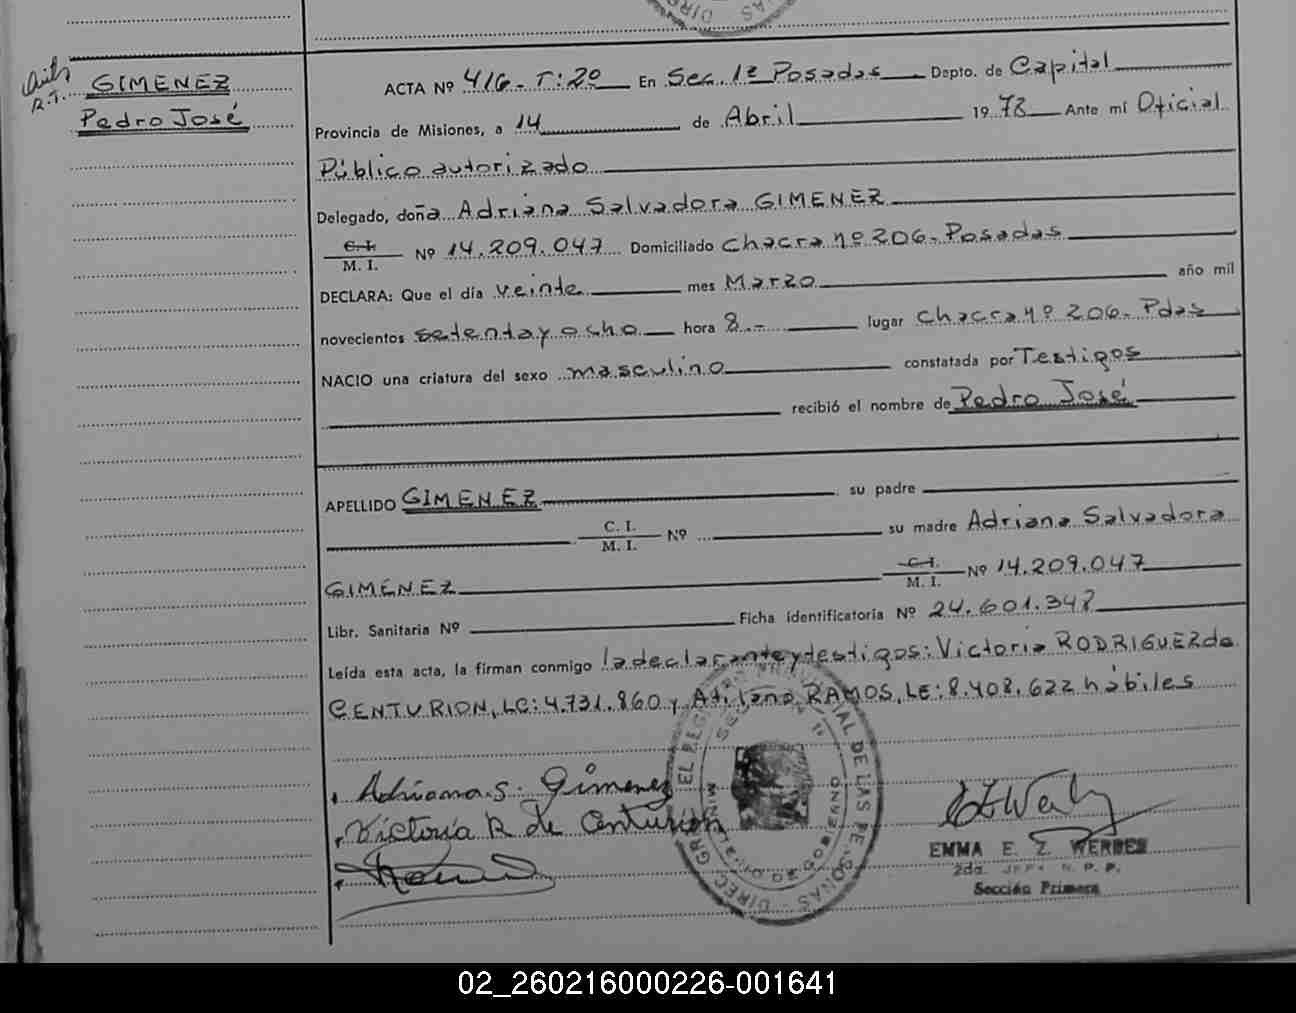 GIMENEZ
Pedro José
ACTA Nº 416.-T:2º En Sec. 1ª Posadas Depto. de Capital
Provincia de Misiones, a 14 de Abril 1978 Ante mí Oficial
Público autorizado
Delegado, doña Adriana Salvadora GIMENEZ
C. I.
M. I. Nº 14.209.047 Domiciliado chacra nº 206.-Posadas
DECLARA: Que el día veinte mes Marzo año mil
novecientos setenta y ocho hora 8.- lugar chacra nº 206.-Pdas
NACIO una criatura del sexo masculino constatada por Testigos
recibió el nombre de Pedro José
APELLIDO GIMENEZ su padre
C. I.
M. I. Nº su madre Adriana Salvadora
GIMENEZ C. I.
M. I. Nº 14.209.047
Libr. Sanitaria Nº Ficha identificatoria Nº 24.601.347
Leída esta acta, la firman conmigo la declarante y testigos: Victoria RODRIGUEZ de
CENTURION, LC: 4.731.860 y Atilano RAMOS, LE: 8.408.622 hábiles
Adriana S. Gimenez
Victoria R de Centurion
EMMA E. Z. WERBES
2da. JEFA R. P. P.
Sección Primera
02_260216000226-001641